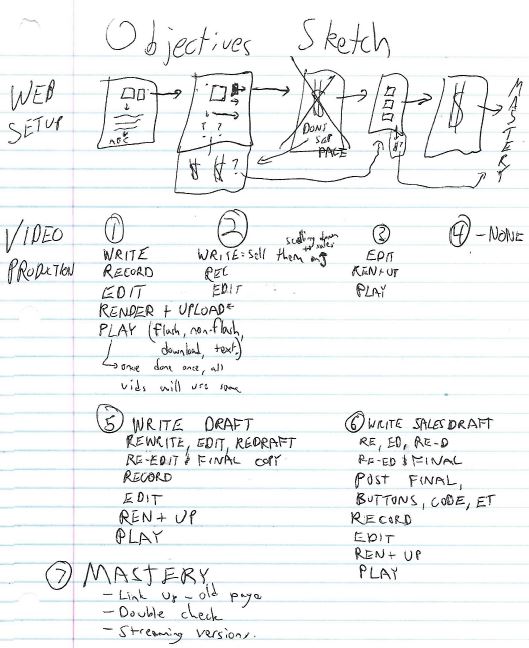 Objectives Sketch
WEB
SETUP
ABC
? ?
$ $ ?
$
DONT
PAGE
$?
$
MASTERY
VIDEO
PRODUCTION
① ② ③ ④ - NONE
WRITE
RECORD
EDIT
RENDER + UPLOAD
PLAY (flash, non-flash,
download, text.)
once done once, all
vids will use same
WRITE: Sell them on
scrolling down
to sales
REC
EDIT
EDIT
REN+UP
PLAY
⑤ WRITE DRAFT
REWRITE, EDIT, REDRAFT
RE-EDIT & FINAL COPY
RECORD
EDIT
REN + UP
PLAY
⑥ WRITE SALES DRAFT
RE, ED, RE-D
RE-ED & FINAL
POST FINAL,
BUTTONS, CODE, ET
RECORD
EDIT
REN + UP
PLAY
⑦ MASTERY
- Link up - old page
- Double check
- Streaming versions.